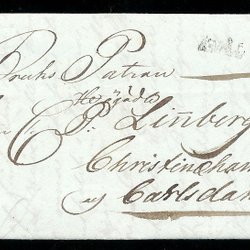 Bruks Patron
Högädle
C. P. Linberg
Christineham
af Carlsdam